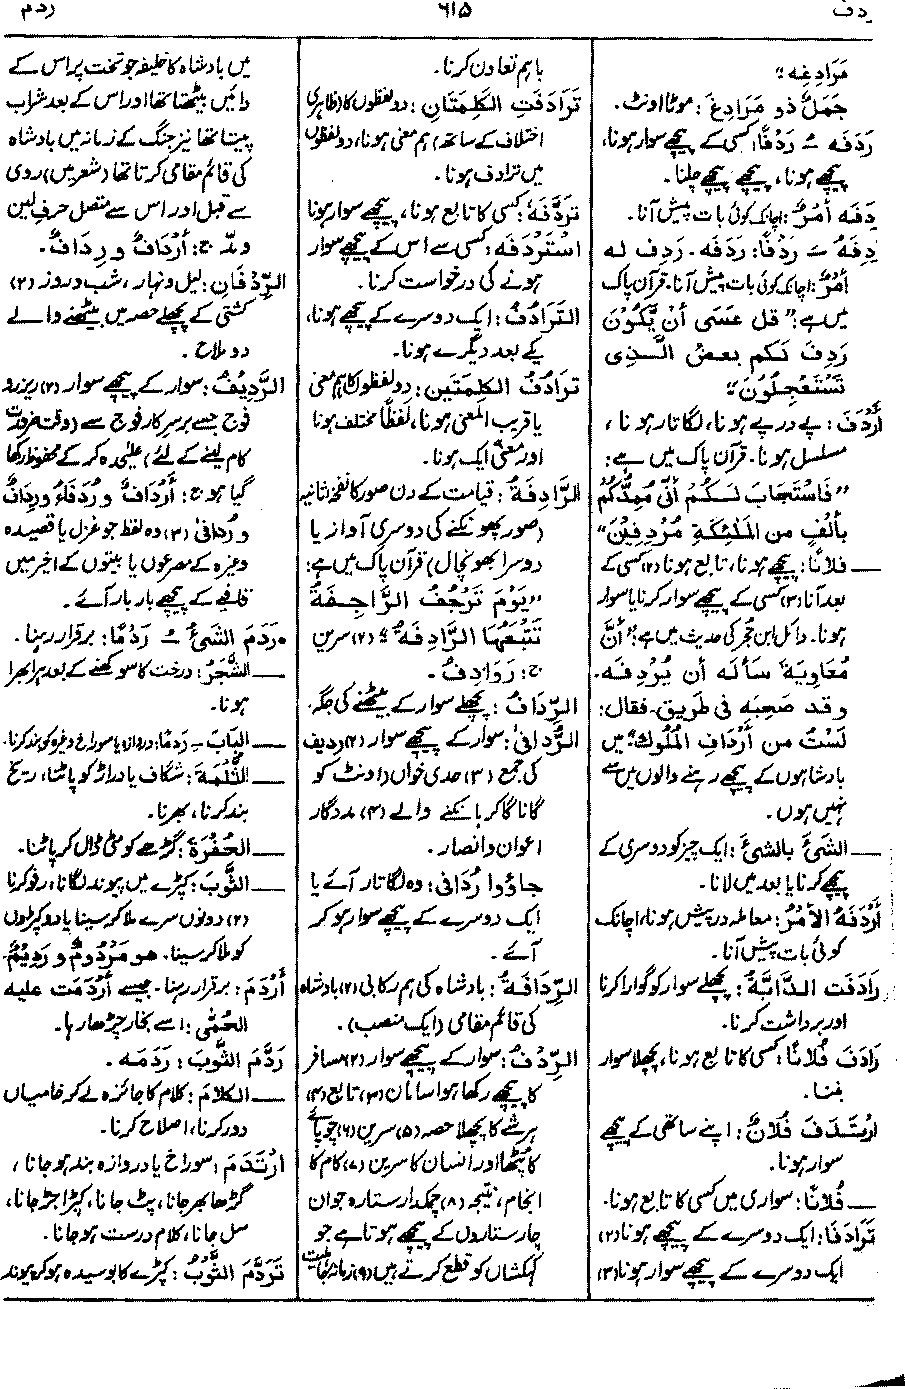 ردم ۶۱۵ ردف
مَرَادِغِه؛
جَمَلٌ ذو مَرَادِغَ: موٹا اونٹ۔
رَدَفَه ـُ رَدْفًا: کسی کے پیچھے سوار ہونا،
پیچھے ہونا، پیچھے پیچھے چلنا۔
رَدِفَه أَمْرٌ: اچانک کوئی بات پیش آنا۔
رَدِفَهُ ـَ رَدْفًا: رَدَفَه۔ رَدِفَ له
أَمْرٌ: اچانک کوئی بات پیش آنا۔ قرآن پاک
میں ہے: "قل عَسَى أن يَّكُوْنَ
رَدِفَ لَكم بعضُ الَّذِى
تَسْتَعْجِلُوْنَ"
أَرْدَفَ: پے در پے ہونا، لگا تار ہونا،
مسلسل ہونا۔ قرآن پاک میں ہے:
"فَاسْتَجَابَ لَكُمْ أَنِّى مُمِدُّكُم
بِأَلْفٍ من المَلٰئِكَةِ مُرْدِفِيْنَ"
— فلانًا: پیچھے ہونا، تابع ہونا (۲) کسی کے
بعد آنا (۳) کسی کے پیچھے سوار کرنا یا سوار
ہونا۔ وائل ابن حجر کی حدیث میں ہے: "أنَّ
مُعَاوِيَةَ سَأَلَه أن يُرْدِفَه۔
وقد صَحِبَه فى طَرِيق۔ فقال:
لَسْتُ من أَرْدَافِ المُلُوك" میں
بادشاہوں کے پیچھے رہنے والوں میں سے
نہیں ہوں۔
— الشیَٔ بالشیٔ: ایک چیز کو دوسری کے
پیچھے کرنا یا بعد میں لانا۔
أَرْدَفَهُ الأَمْرُ: معاملہ درپیش ہونا، اچانک
کوئی بات پیش آنا۔
رَادَفَتِ الدَّابَّةُ: پچھلے سوار کو گوارا کرنا
اور برداشت کرنا۔
رَادَفَ فُلانًا: کسی کا تابع ہونا، پچھلا سوار
بننا۔
ارْتَدَفَ فُلانٌ: اپنے ساتھی کے پیچھے
سوار ہونا۔
— فُلانًا: سواری میں کسی کا تابع ہونا۔
تَرَادَفَا: ایک دوسرے کے پیچھے ہونا (۲)
ایک دوسرے کے پیچھے سوار ہونا (۳)
باہم تعاون کرنا۔
تَرَادَفَتِ الكَلِمَتَانِ: دو لفظوں کا (ظاہری
اختلاف کے ساتھ) ہم معنی ہونا، دو لفظوں
میں ترادف ہونا۔
تَرَدَّفَهُ: کسی کا تابع ہونا، پیچھے سوار ہونا
اسْتَرْدَفَه: کسی سے اس کے پیچھے سوار
ہونے کی درخواست کرنا۔
التَرَادُفُ: ایک دوسرے کے پیچھے ہونا،
یکے بعد دیگرے ہونا۔
تَرادُفُ الكلمتَين: دو لفظوں کا ہم معنی
یا قریب المعنی ہونا، لفظاً مختلف ہونا
اور معنیً ایک ہونا۔
الرَّادِفَةُ: قیامت کے دن صور کا نفخہ ثانیہ
(صور پھونکنے کی دوسری آواز یا
دوسرا بھونچال) قرآن پاک میں ہے:
"يَوْمَ تَرْجُفُ الرَّاجِفَةُ
تَتْبَعُهَا الرَّادِفَةُ"؛ (۲) سرین
ج: رَوَادِفُ۔
الرِّدَافُ: پچھلے سوار کے بیٹھنے کی جگہ۔
الرُّدَافَىٰ: سوار کے پیچھے سوار (۲) ردیف
کی جمع (۳) حدی خواں (اونٹ کو
گانا گا کر ہانکنے والے (۴) مددگار
اعوان و انصار۔
جاؤوا رُدَافَى: وہ لگا تار آئے یا
ایک دوسرے کے پیچھے سوار ہو کر
آئے۔
الرِّدَافَةُ: بادشاہ کی ہم رکابی (۲) بادشاہ
کی قائم مقامی (ایک منصب)۔
الرِّدْفُ: سوار کے پیچھے سوار (۲) مسافر
کا پیچھے رکھا ہوا سامان (۳) تابع (۴)
ہر شے کا پچھلا حصہ (۵) سرین (۶) چوپائے
کا پٹھا اور انسان کا سرین (۷) کام کا
انجام، نتیجہ (۸) چمکدار ستارہ جوان
چار ستاروں کے پیچھے ہوتا ہے جو
کہکشاں کو قطع کرتے ہیں (۹) زمانہ جاہلیت
میں بادشاہ کا خلیفہ جو تخت پر اس کے
دائیں بیٹھتا تھا اور اس کے بعد شراب
پیتا تھا نیز جنگ کے زمانہ میں بادشاہ
کی قائم مقامی کرتا تھا (شعر میں) روی
سے قبل اور اس سے متصل حرفِ لین
و مد ج: أَرْدَافٌ و رِدَافٌ۔
الرِّدْفَانِ: لیل و نہار، شب و روز (۲)
کشتی کے پچھلے حصہ میں بیٹھنے والے
دو ملاح۔
الرَّدِيْفُ: سوار کے پیچھے سوار (۲) ریزرو
فوج جسے برسر کار فوج سے (وقت ضرورت
کام لینے کے لئے) علیحدہ کر کے محفوظ رکھا
گیا ہو ج: أَرْدَافٌ و رُدَفَاءُ و رِدَافٌ
و رُدافَىٰ (۳) وہ لفظ جو غزل یا قصیدہ
وغیرہ کے مصرعوں یا بیتوں کے اخیر میں
قافیے کے پیچھے بار بار آئے۔
•رَدَمَ الشیُٔ ـُ رَدْمًا: برقرار رہنا۔
— الشَّجَرُ: درخت کا سوکھنے کے بعد ہرا بھرا
ہونا۔
— البَابَ ـِ رَدمًا: دروازہ یا سوراخ وغیرہ کو بند کرنا۔
— الثُّلْمَةَ: شگاف یا دراڑ کو پاٹنا، ریخ
بند کرنا، بھرنا۔
— الحُفْرَةَ: گڑھے کو مٹی ڈال کر پاٹنا۔
— الثَّوْبَ: کپڑے میں پیوند لگانا، رفو کرنا
(۲) دونوں سرے ملا کر سینا یا دو کپڑوں
کو ملا کر سینا۔ هو مَرْدُومٌ و رَدِيْمٌ۔
أَرْدَمَ: برقرار رہنا۔ جیسے أَرْدَمَت عليه
الحُمّٰى: اسے بخار چڑھا رہا۔
رَدَّمَ الثَّوْبَ: رَدَمَه۔
— الكلامَ: کلام کا جائزہ لے کر خامیاں
دور کرنا، اصلاح کرنا۔
ارْتَدَمَ: سوراخ یا دروازہ بند ہو جانا،
گڑھا بھر جانا، پٹ جانا، کپڑا جڑ جانا،
سل جانا، کلام درست ہو جانا۔
تَرَدَّمَ الثَّوْبُ: کپڑے کا بوسیدہ ہو کر پیوند